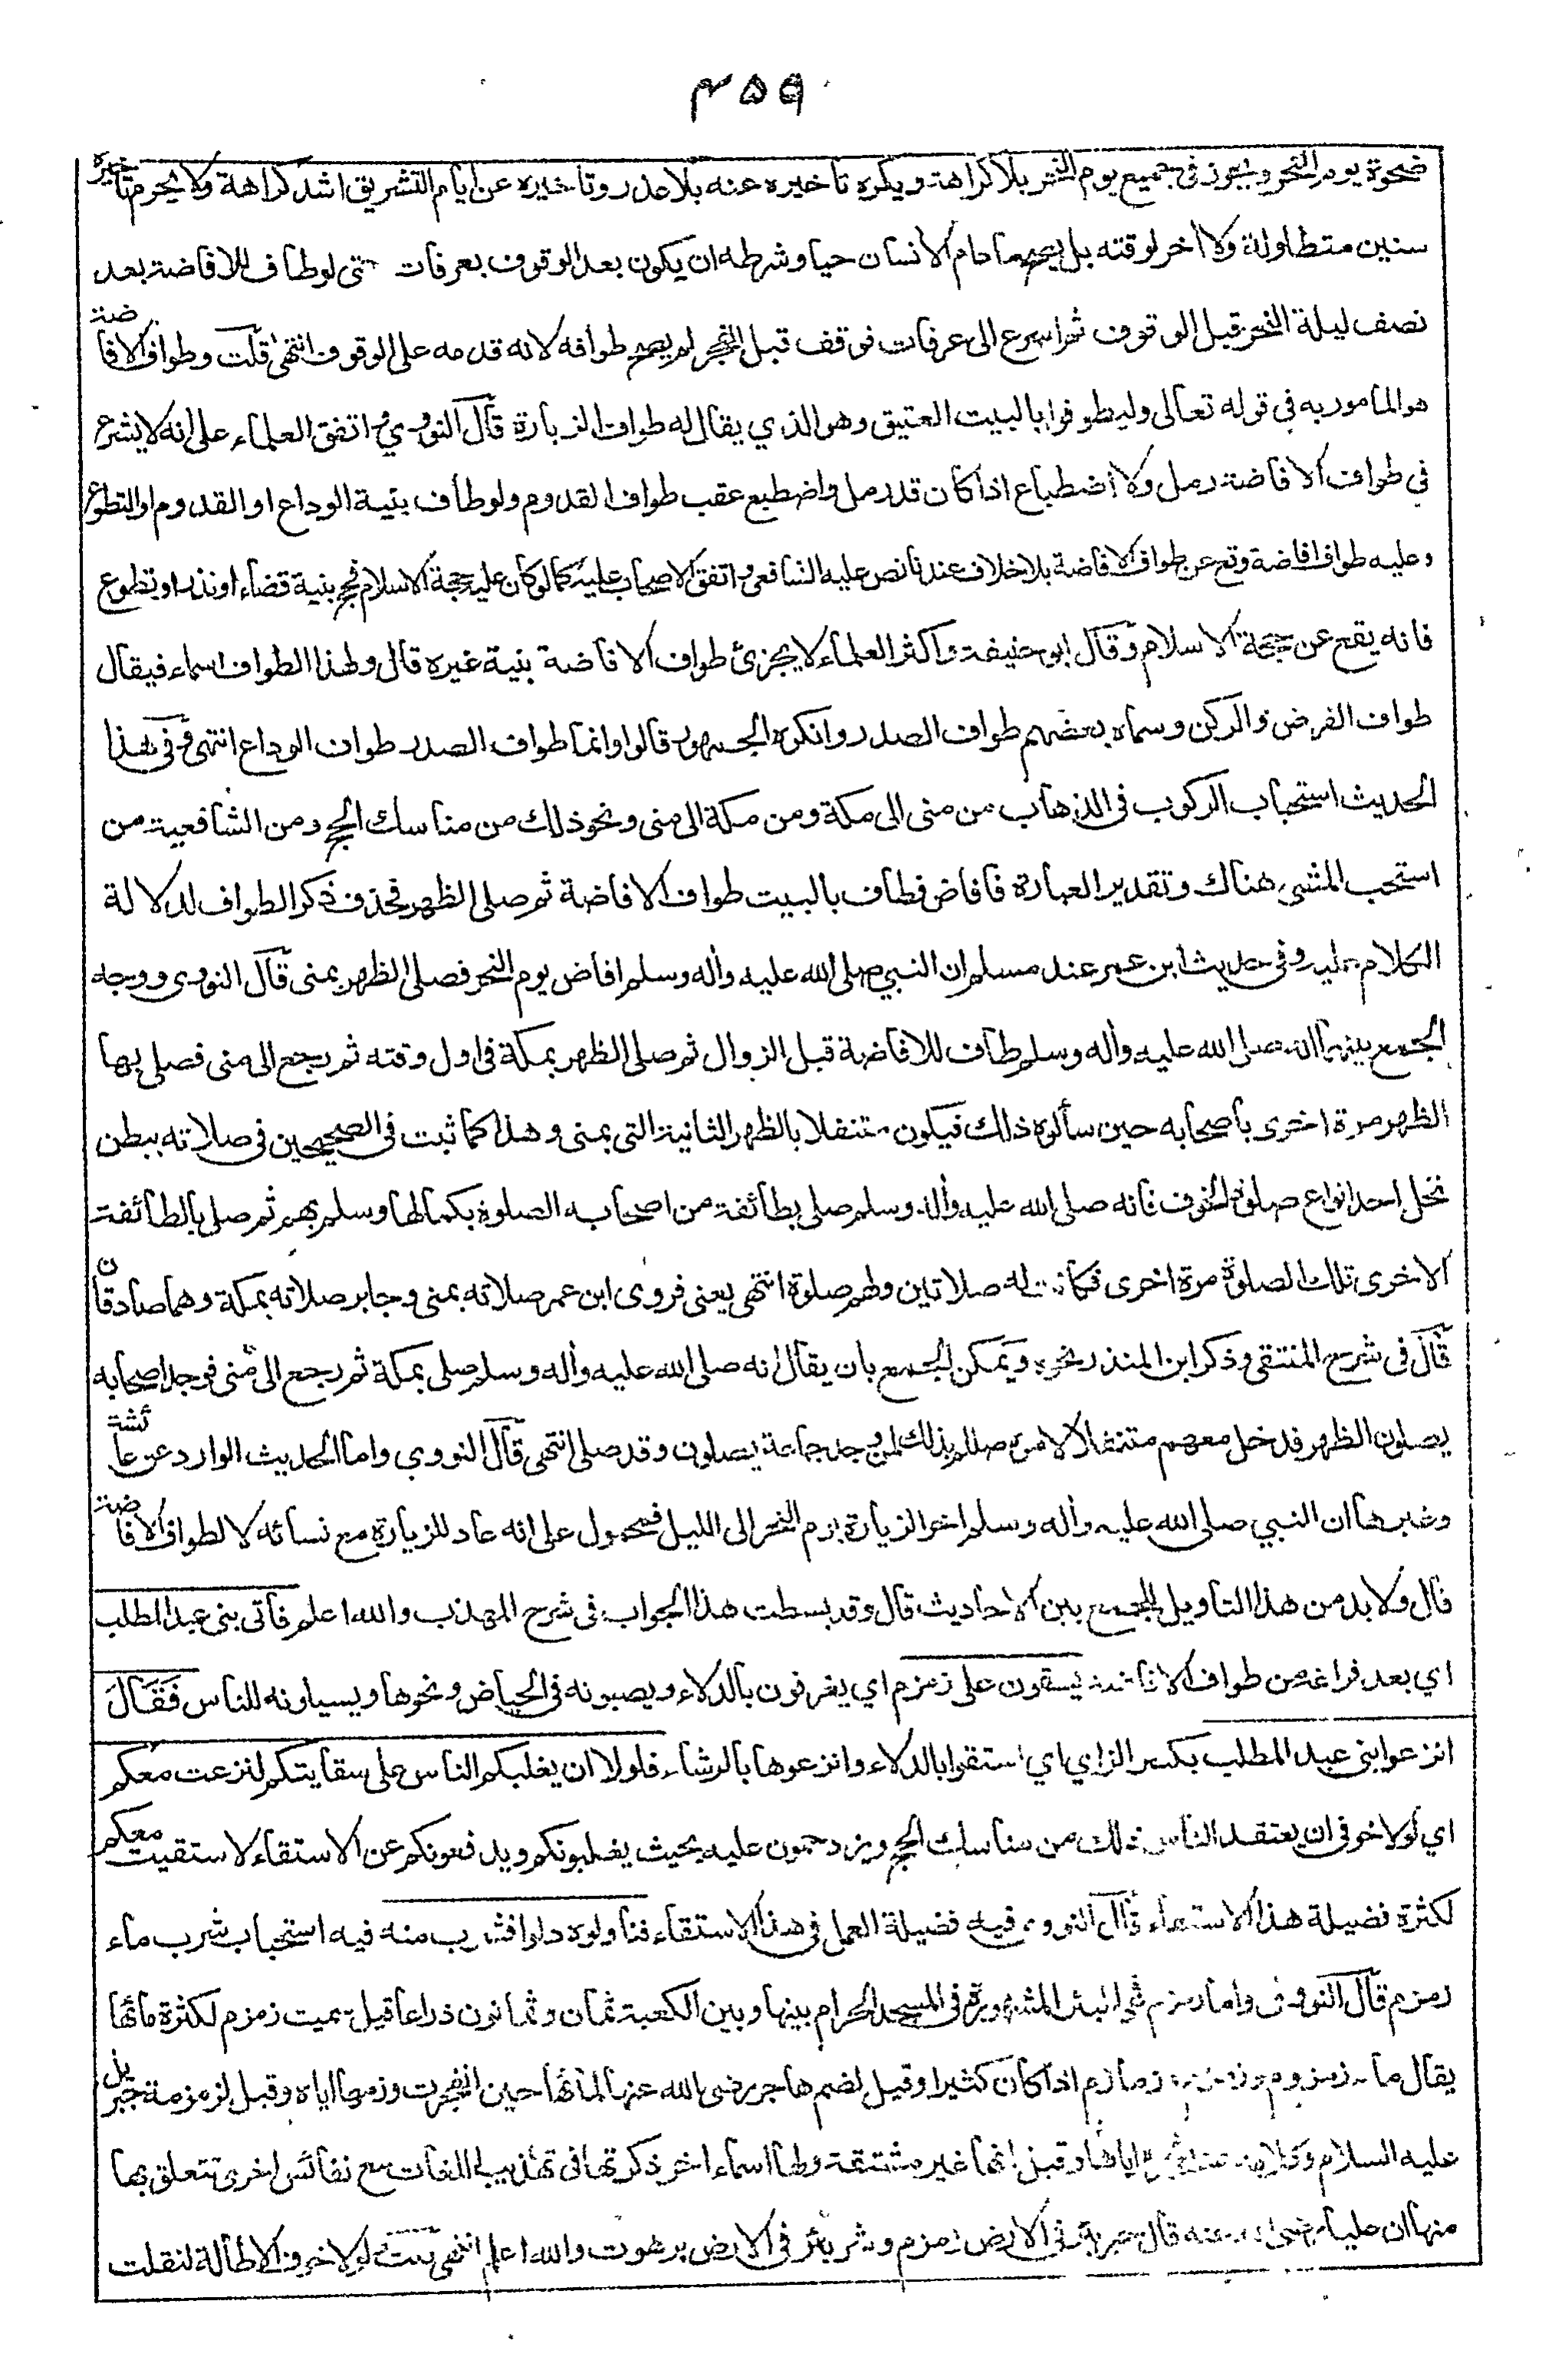 ۴۵۹
ضحوة يوم النحر ويجوز في جميع يوم النحر بلا كراهة ويكره تاخيره عنه بلا عذر وتاخيره عن ايام التشريق اشد كراهة ولا يحرم تاخيره
سنين متطاولة ولا أخر لوقته بل يصح ما دام الانسان حيا وشرطه ان يكون بعد الوقوف بعرفات حتى لو طاف للافاضة بعد
نصف ليلة النحر قبل الوقوف ثم اسرع الى عرفات فوقف قبل الفجر لم يصح طوافه لانه قدمه على الوقوف انتهى قلت وطواف الافاضة
هو المامور به في قوله تعالى وليطوفوا بالبيت العتيق وهو الذي يقال له طواف الزيارة قال النووي واتفق العلماء على انه لا يشرع
في طواف الافاضة رمل ولا اضطباع اذا كان قد رمل واضطبع عقب طواف القدوم ولو طاف بنية الوداع او القدوم او التطوع
وعليه طواف افاضة وقع عن طواف الافاضة بلا خلاف عندنا نص عليه الشافعي واتفق الاصحاب عليه كما لو كان عليه حجة الاسلام فحج بنية قضاء او نذر او تطوع
فانه يقع عن حجة الاسلام وقال ابو حنيفة واكثر العلماء لا يجزئ طواف الافاضة بنية غيره قال ولهذا الطواف اسماء فيقال
طواف الفرض والركن وسماه بعضهم طواف الصدر وانكره الجمهور قالوا وانما طواف الصدر طواف الوداع انتهى وفي هذا
الحديث استحباب الركوب في الذهاب من منى الى مكة ومن مكة الى منى ونحو ذلك من مناسك الحج ومن الشافعية من
استحب المشي هناك وتقدير العبارة فافاض فطاف بالبيت طواف الافاضة ثم صلى الظهر فحذف ذكر الطواف لدلالة
الكلام عليه وفي حديث ابن عمر عند مسلم ان النبي صلى الله عليه وأله وسلم افاض يوم النحر فصلى الظهر بمنى قال النووي ووجه
الجمع بينهما انه صلى الله عليه وأله وسلم طاف للافاضة قبل الزوال ثم صلى الظهر بمكة في اول وقته ثم رجع الى منى فصلى بها
الظهر مرة اخرى باصحابه حين سألوه ذلك فيكون متنفلا بالظهر الثانية التي بمنى وهذا كما ثبت في الصحيحين في صلاته ببطن
نخل احد انواع صلوة الخوف فانه صلى الله عليه وأله وسلم صلى بطائفة من اصحابه الصلوة بكمالها وسلم بهم ثم صلى بالطائفة
الاخرى تلك الصلوة مرة اخرى فكانت له صلاتين ولهم صلوة انتهى يعني فروى ابن عمر صلاته بمنى وجابر صلاته بمكة وهما صادقان
قال في شرح المنتقى وذكر ابن المنذر نحوه ويمكن الجمع بان يقال انه صلى الله عليه وأله وسلم صلى بمكة ثم رجع الى منى فوجد اصحابه
يصلون الظهر فدخل معهم متنفلا لامره صللم بذلك لمن وجد جماعة يصلون وقد صلى انتهى قال النووي واما الحديث الوارد عن عائشة
وغيرها ان النبي صلى الله عليه وأله وسلم اخر الزيارة يوم النحر الى الليل فمحمول على انه عاد للزيارة مع نسائه لا لطواف الافاضة
قال ولا بد من هذا التاويل للجمع بين الاحاديث قال وقد بسطت هذا الجواب في شرح المهذب والله اعلم فأتى بني عبد المطلب
اي بعد فراغه من طواف الافاضة يسقون على زمزم اي يغرفون بالدلاء ويصبونه في الحياض ونحوها ويسبلونه للناس فَقَالَ
انزعوا بني عبد المطلب بكسر الزاي اي استقوا بالدلاء وانزعوها بالرشاء فلولا ان يغلبكم الناس على سقايتكم لنزعت معكم
اي لولا خوفي ان يعتقد الناس ذلك من مناسك الحج ويزدحمون عليه بحيث يغلبونكم ويدفعونكم عن الاستقاء لاستقيت معكم
لكثرة فضيلة هذا الاستقاء قال النووي فيه فضيلة العمل في هذا الاستقاء فناولوه دلوا فشرب منه فيه استحباب شرب ماء
زمزم قال النووي واما زمزم فهي البئر المشهورة في المسجد الحرام بينها وبين الكعبة ثمان وثمانون ذراعا قيل سميت زمزم لكثرة مائها
يقال ماء زمزوم وزمزم وزمازم اذا كان كثيرا وقيل لضم هاجر رضى الله عنها لمائها حين انفجرت وزمها اياه وقيل لزمزمة جبريل
عليه السلام وكلامه عند اياها وقيل انها غير مشتقة ولها اسماء اخر ذكرتها في تهذيب اللغات مع نفائس اخرى تتعلق بها
منها ان عليا رضى الله عنه قال خير بئر في الارض زمزم وشر بئر في الارض برهوت والله اعلم انتهى قلت لولا خوف الاطالة لنقلت